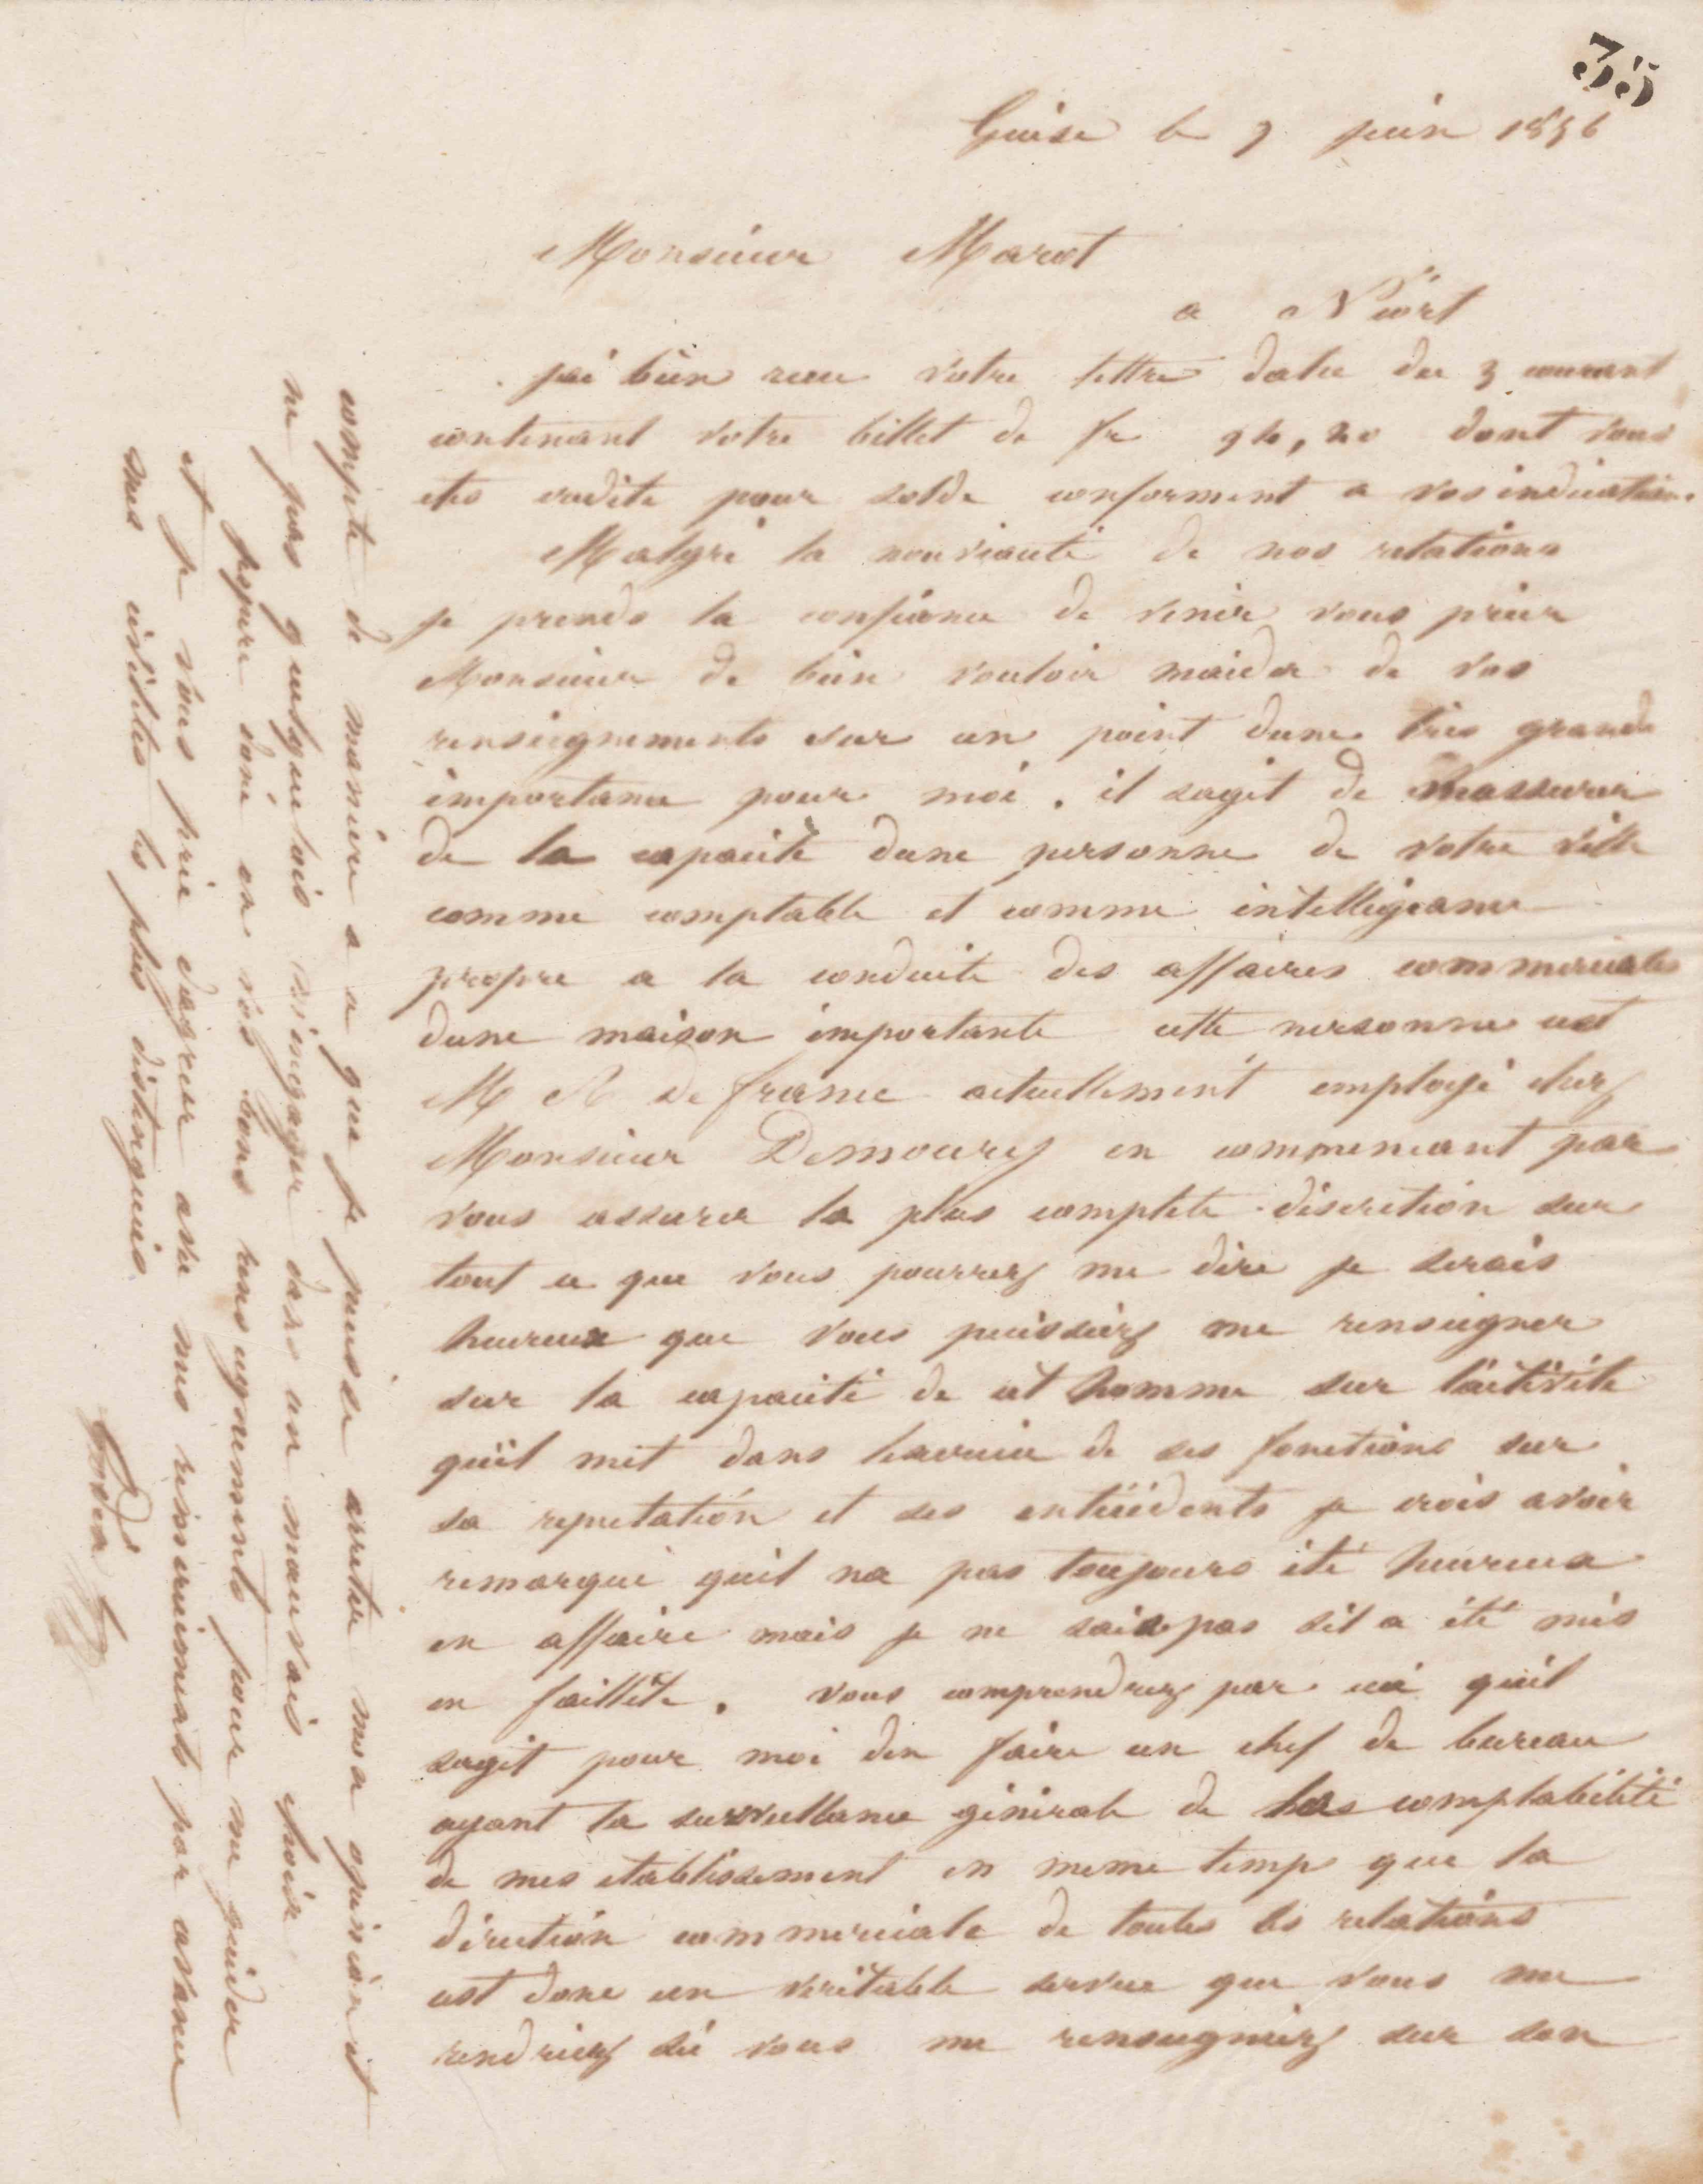 35
Guise le 9 juin 1856
Monsieur Marot
a Niort
jai bien recu votre lettre datee du 3 courant
contenant votre billet de fr dont vous
etes credite pour solde conforment a vos indications
Malgré la nouviauté de nos relations
je prends la confiance de venir vous prier
Monsieur de bien vouloir maider de vos
renseignements sur un point dune tres grande
importance pour moi. il sagit de massurer
de la capacité dune personne de votre ville
comme comptable et comme intelligeance
propre a la conduite des affaires commerciales
dune maison importante cette personne est
M A de france actuellement employé chez
Monsieur Demourey en commencant par
vous assurer la plus complete discretion sur
tout ce que vous pourrez me dire je serais
heureux que vous puissiez me renseigner
sur la capacité de cet homme sur lactivite
quil met dans lexercice de ses fonctions sur
sa reputation et ses antécédents je crois avoir
remarqué quil na pas toujours été heureux
en affaire mais je ne sais pas sil a été mis
en faillite. vous comprendrez par ceci quil
sagit pour moi den faire un chef de bureau
ayant la surveillance générale de la comptabilité
de mes etablissement en meme temps que la
direction commerciale de toutes les relations
cest donc un veritable service que vous me
rendriez si vous me renseigniez sur son
compte de maniere a ce que je puisse arreter mon opinion et
ne pas quelquefois mengager dans un mauvais choix
jespere donc en vos bons renseignements pour me guider
et je vous prie dagreer avec mes remerciments par avance
mes civilites les plus distinguées
Godin